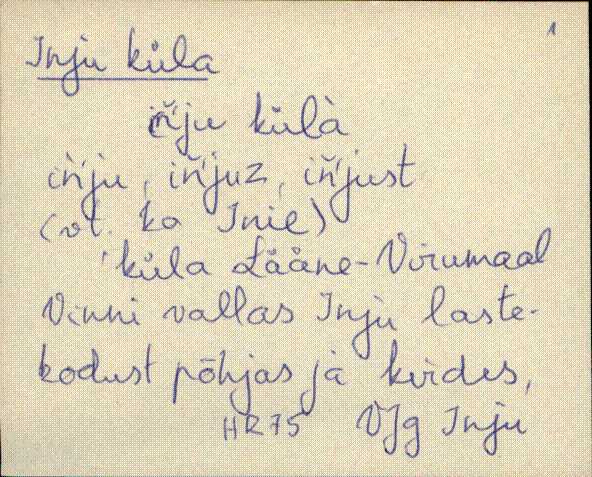 1
Inju küla
iń'ju külà
iń'ju, iń'juz, iń'just
(vt. ka Inie)
küla Lääne-Virumaal
Vinni vallas Inju laste-
kodust põhjas ja kirdes,
HR75 VJg Inju